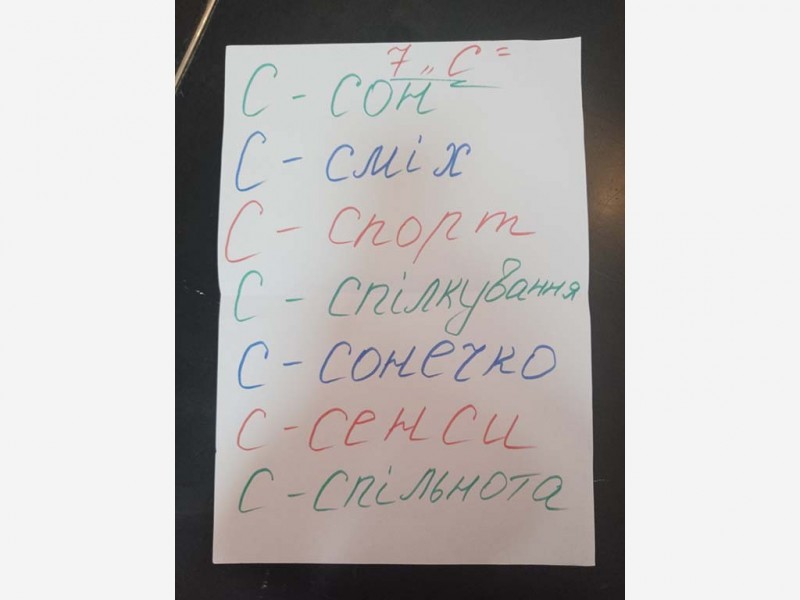 7 „С"
С - сон
С - сміх
С - спорт
С - спілкування
С - сонечко
С - сенси
С - спільнота